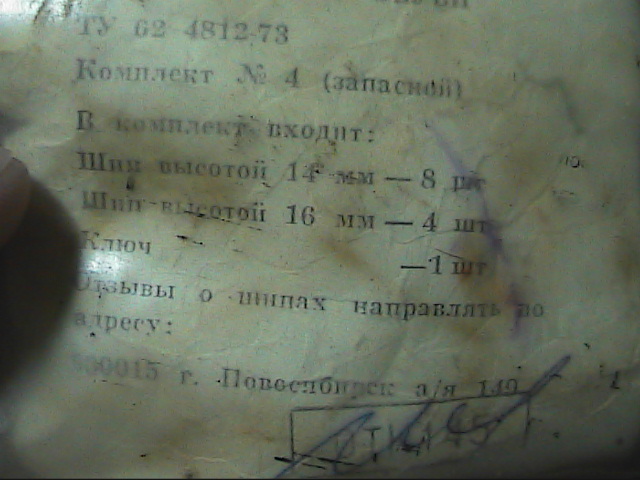 ТУ 62 4812-73
Комплект № 4 (запасной)
В комплект входит:
Шип высотой 14 мм — 8 шт
Шип высотой 16 мм — 4 шт
Ключ — 1 шт
Отзывы о шипах направлять по
адресу:
630015 г. Новосибирск а/я 149